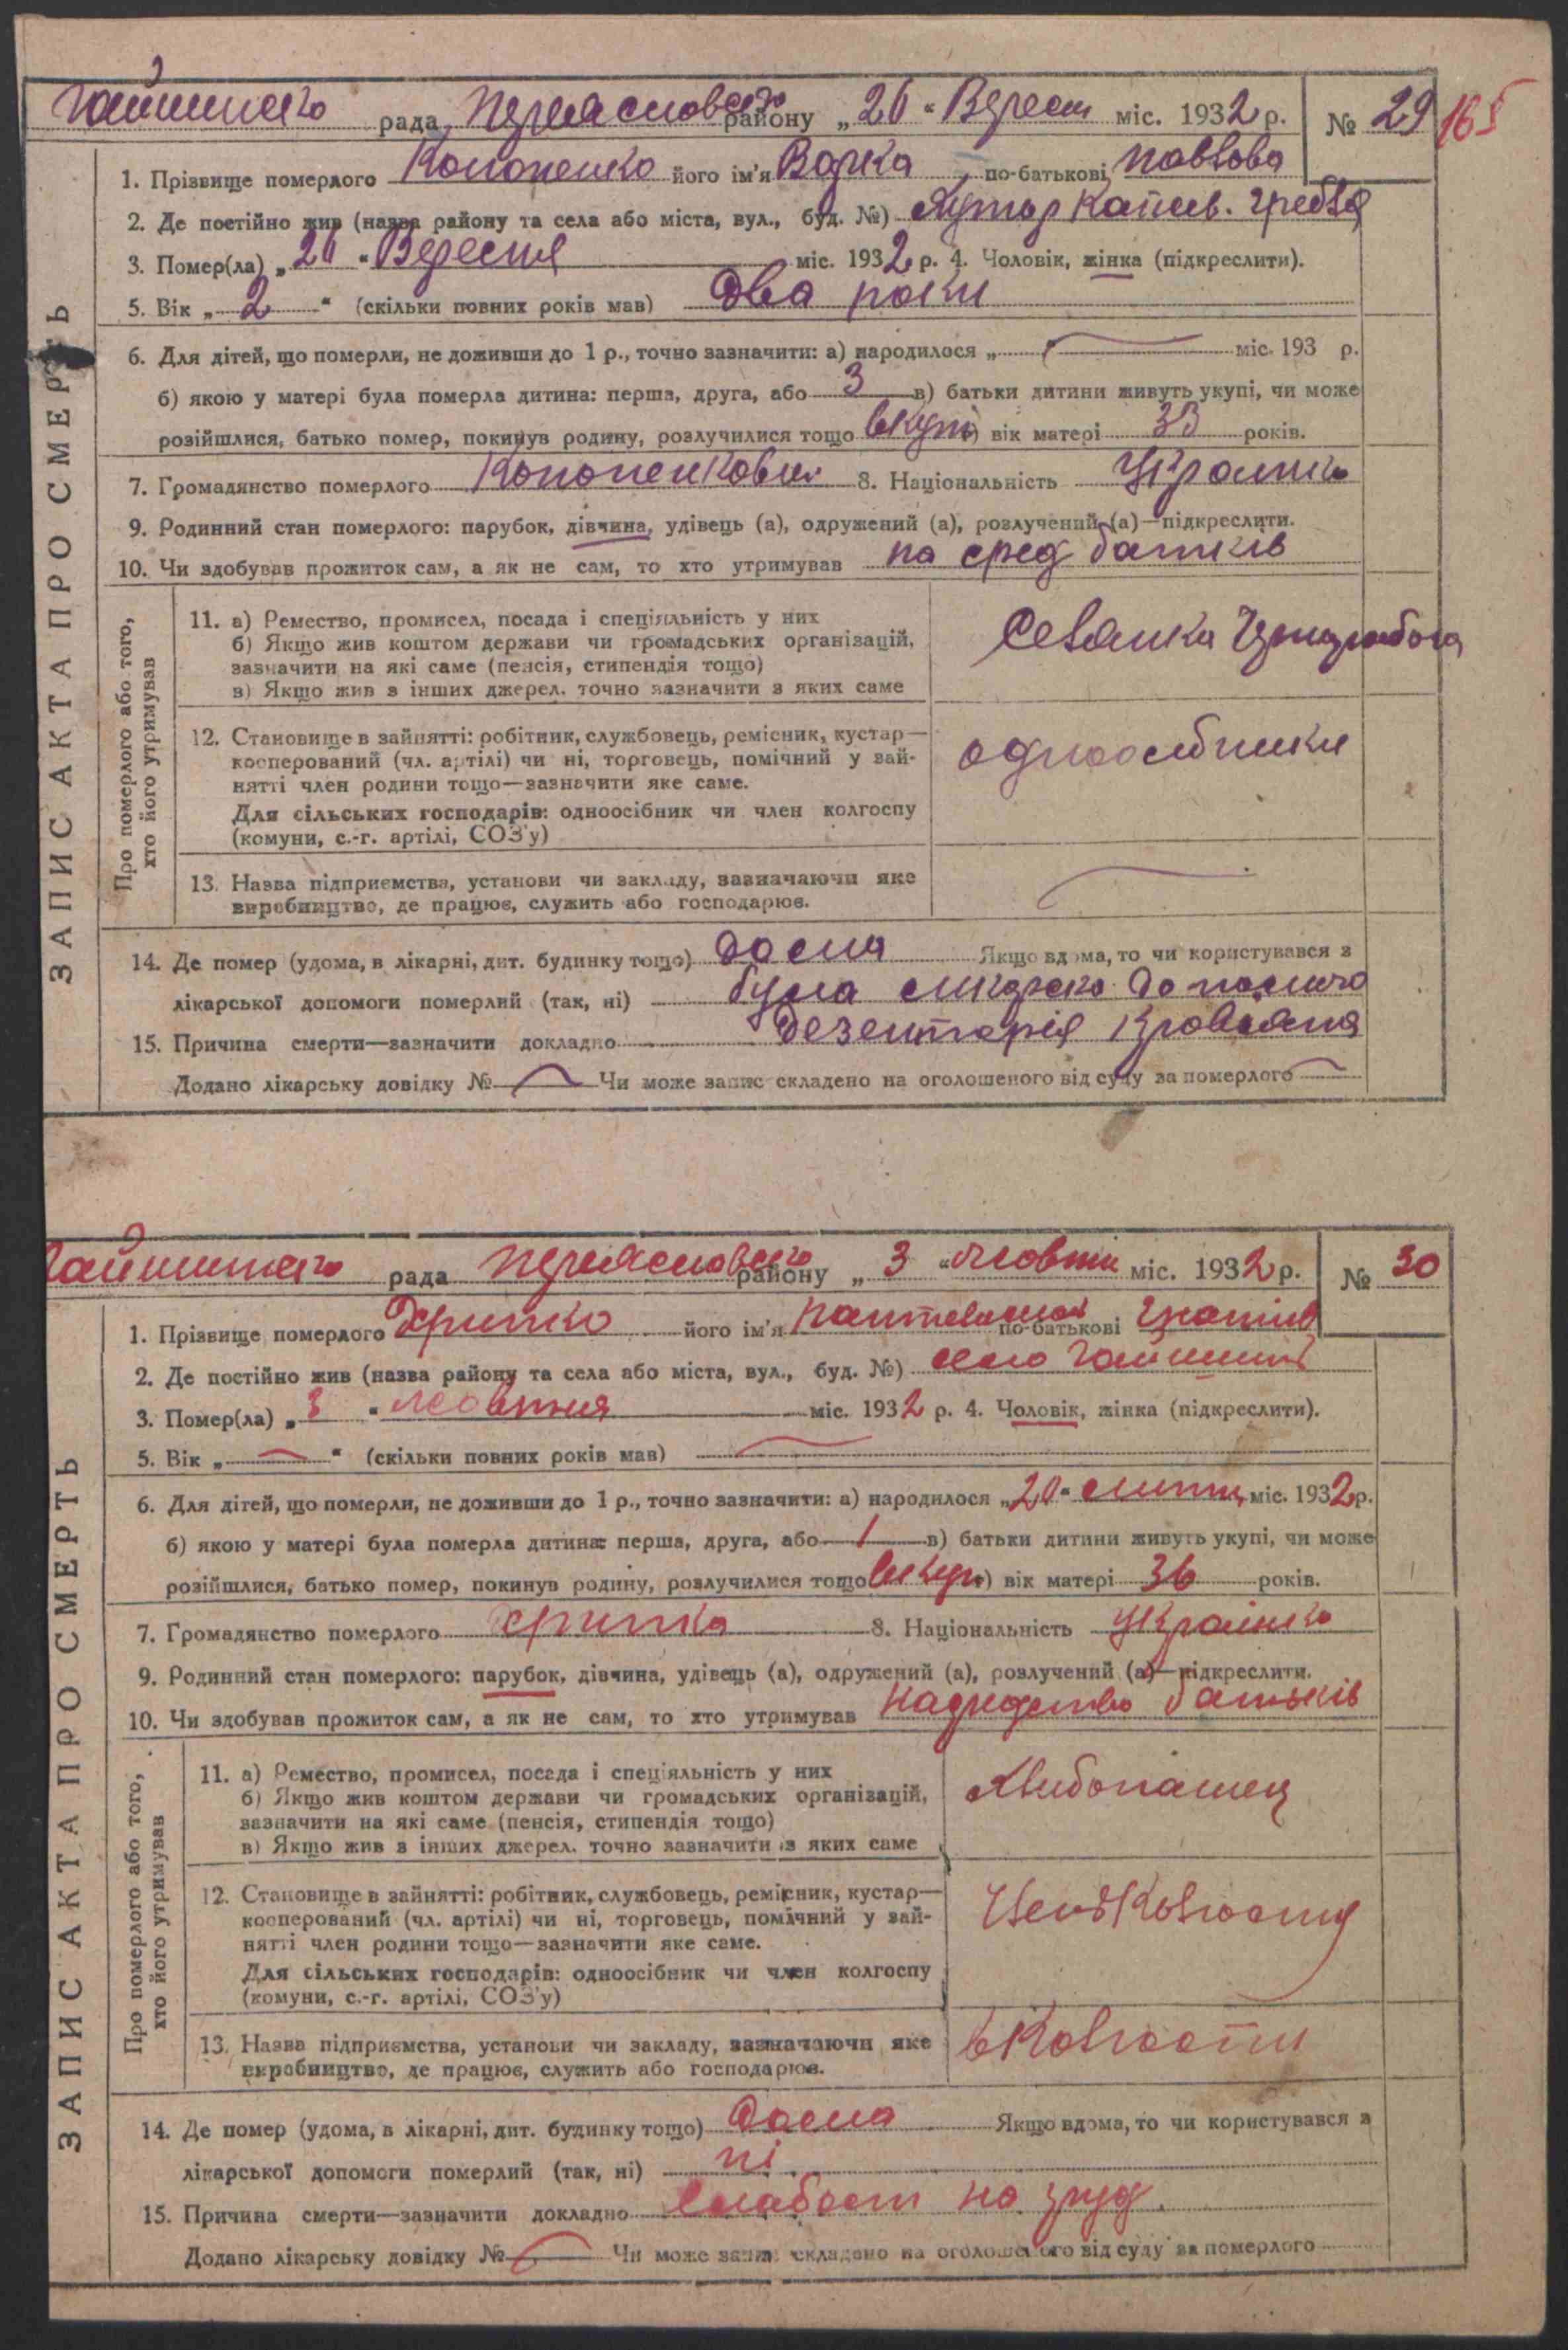 рада Переяславсько району „26“ Вересня міс. 1932 р. № 29 165
1. Прізвище померлого Кононенко його ім'я Варка, по-батькові Павлова
2. Де постійно жив (назва району та села або міста, вул., буд. № ) Хутор гребля
3. Помер(ла) „26“ Вересня міс. 1932 р. 4. Чоловік, жінка (підкреслити).
5. Вік „2“ (скільки повних років мав) два роки
ЗАПИС АКТА ПРО СМЕРТЬ
6. Для дітей, що померли, не доживши до 1 р., точно зазначити: а) народилося „ міс. 193 р.
б) якою у матері була померла дитина: перша, друга, або 3 в) батьки дитини живуть укупі, чи може
розійшлися, батько помер, покинув родину, розлучилися тощо вкупі г) вік матері років.
7. Громадянство померлого 8. Національність
9. Родинний стан померлого: парубок, дівчина, удівець (а), одружений (а), розлучений (а)—підкреслити.
10. Чи здобував прожиток сам, а як не сам, то хто утримував на сред батьків
Про померлого або того,
хто його утримував
11. а) Ремество, промисел, посада і спеціяльність у них
б) Якщо жив коштом держави чи громадських організацій,
зазначити на які саме (пенсія, стипендія тощо)
в) Якщо жив з інших джерел, точно зазначити з яких саме
Селянка
12. Становище в зайнятті: робітник, службовець, ремісник, кустар—
косперований (чл. артілі) чи ні, торговець, помічний у зай-
нятті член родини тощо—зазначити яке саме.
Для сільських господарів: одноосібник чи член колгоспу
(комуни, с.-г. артілі, СОЗ'у)
одноосібники
13. Назва підприємства, установи чи закладу, зазначаючи яке
виробництво, де працює, служить або господарює.
14. Де помер (удома, в лікарні, дит. будинку тощо) дома Якщо вдома, то чи користувався з
лікарської допомоги померлий (так, ні) була
15. Причина смерти—зазначити докладно Дезентарія кровавая
Додано лікарську довідку № Чи може запис складено на оголошеного від суду за померлого
рада Переяславсько району „3“ жовтня міс. 1932 р. № 30
1. Прізвище померлого Хрипко його ім'я по-батькові
2. Де постійно жив (назва району та села або міста, вул., буд. № ) село Гайшин
3. Помер(ла) „3“ жовтня міс. 1932 р. 4. Чоловік, жінка (підкреслити).
5. Вік „ “ (скільки повних років мав)
ЗАПИС АКТА ПРО СМЕРТЬ
6. Для дітей, що померли, не доживши до 1 р., точно зазначити: а) народилося „20“ липня міс. 1932 р.
б) якою у матері була померла дитина: перша, друга, або 1 в) батьки дитини живуть укупі, чи може
розійшлися, батько помер, покинув родину, розлучилися тощо г) вік матері 36 років.
7. Громадянство померлого 8. Національність
9. Родинний стан померлого: парубок, дівчина, удівець (а), одружений (а), розлучений (а)—підкреслити.
10. Чи здобував прожиток сам, а як не сам, то хто утримував батьків
Про померлого або того,
хто його утримував
11. а) Ремество, промисел, посада і спеціяльність у них
б) Якщо жив коштом держави чи громадських організацій,
зазначити на які саме (пенсія, стипендія тощо)
в) Якщо жив з інших джерел, точно зазначити з яких саме
Хлибопашец
12. Становище в зайнятті: робітник, службовець, ремісник, кустар—
косперований (чл. артілі) чи ні, торговець, помічний у зай-
нятті член родини тощо—зазначити яке саме.
Для сільських господарів: одноосібник чи член колгоспу
(комуни, с.-г. артілі, СОЗ'у)
Член Колгоспу
13. Назва підприємства, установи чи закладу, зазначаючи яке
виробництво, де працює, служить або господарює.
в Колгоспи
14. Де помер (удома, в лікарні, дит. будинку тощо) дома Якщо вдома, то чи користувався з
лікарської допомоги померлий (так, ні) ні
15. Причина смерти—зазначити докладно на
Додано лікарську довідку № Чи може запис складено на оголошеного від суду за померлого